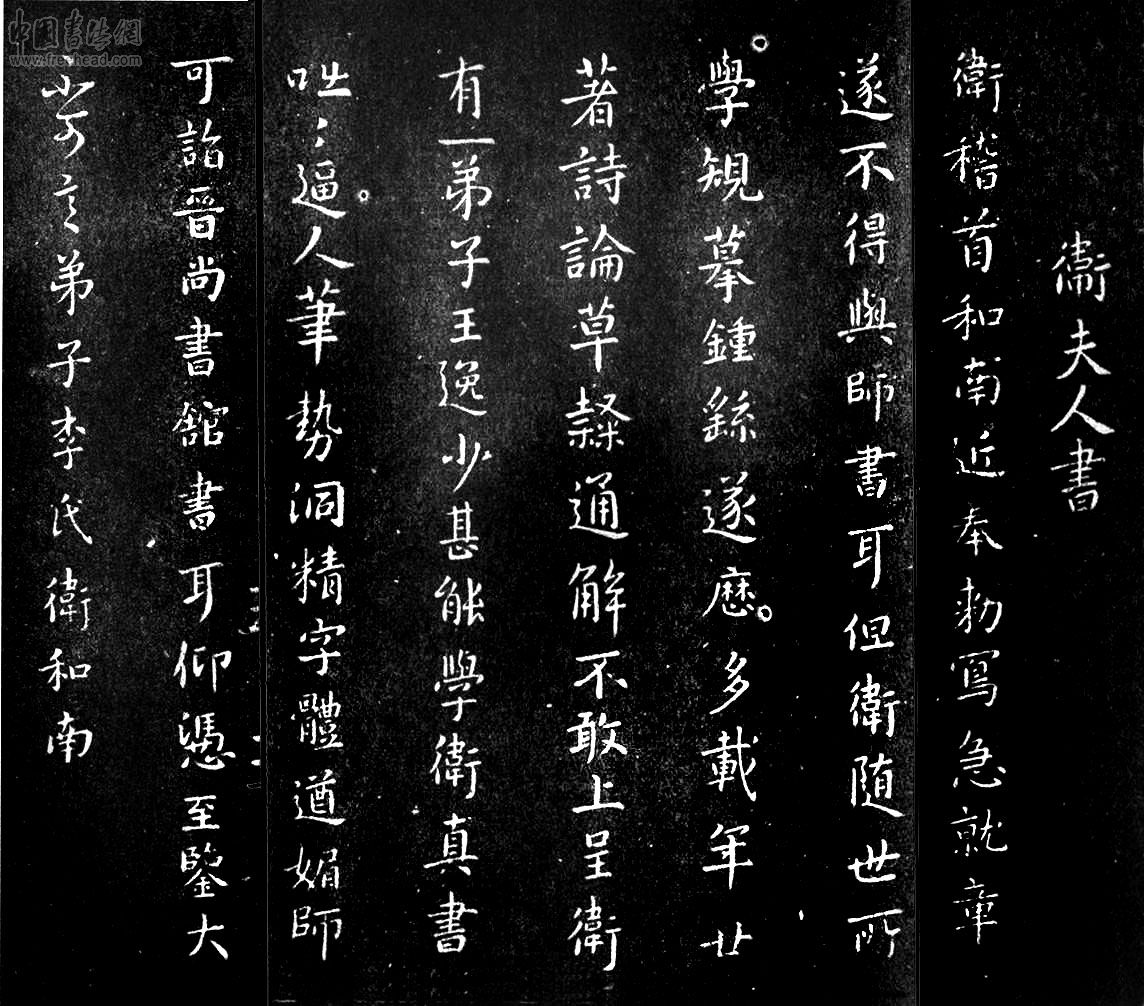 衛夫人書
衛稽首和南近奉勅寫急就章
遂不得與師書耳但衛隨世所
學規摹鍾繇遂歷多載年廿
著詩論草隸通解不敢上呈衛
有一弟子王逸少甚能學衛真書
咄〻逼人筆勢洞精字體遒媚師
可詣晉尚書館書耳仰憑至鑒大
不可言弟子李氏衛和南
中国书法網
www.freehead.com